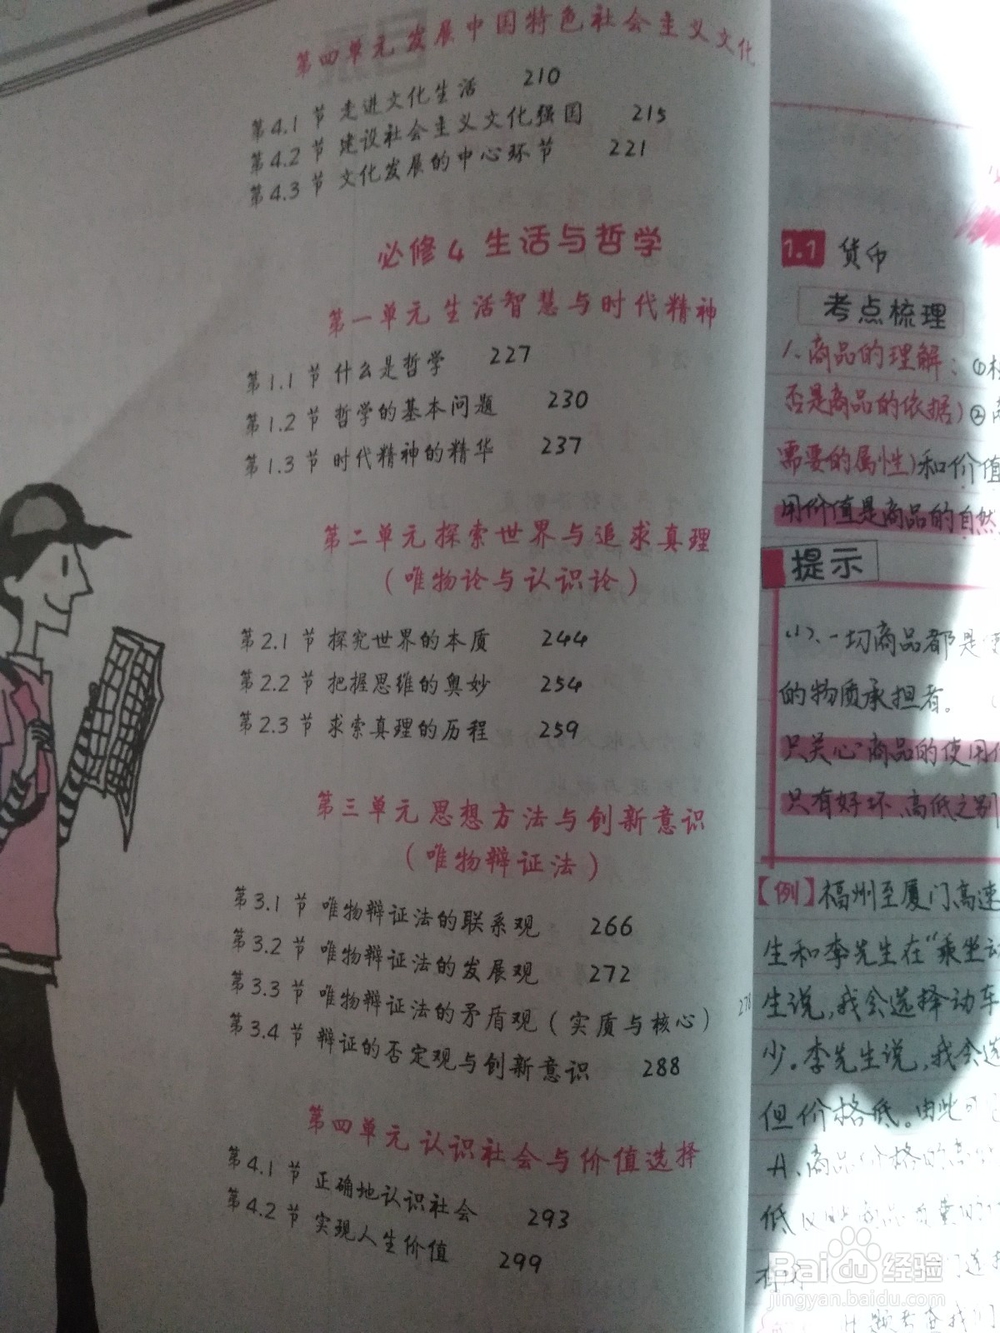 第四单元 发展中国特色社会主义文化
第4.1节 走进文化生活 210
第4.2节 建设社会主义文化强国 215
第4.3节 文化发展的中心环节 221
必修4 生活与哲学
第一单元 生活智慧与时代精神
第1.1节 什么是哲学 227
第1.2节 哲学的基本问题 230
第1.3节 时代精神的精华 237
第二单元 探索世界与追求真理
(唯物论与认识论)
第2.1节 探究世界的本质 244
第2.2节 把握思维的奥妙 254
第2.3节 求索真理的历程 259
第三单元 思想方法与创新意识
(唯物辩证法)
第3.1节 唯物辩证法的联系观 266
第3.2节 唯物辩证法的发展观 272
第3.3节 唯物辩证法的矛盾观(实质与核心) 278
第3.4节 辩证的否定观与创新意识 288
第四单元 认识社会与价值选择
第4.1节 正确地认识社会 293
第4.2节 实现人生价值 299
1.1 货币
考点梳理
1、商品的理解:①
否是商品的依据)②
需要的属性)和价值
用价值是商品的自然
提示
(1)、一切商品都是
的物质承担者。
只关心商品的使用
只有好坏、高低之别
【例】福州至厦门高速
生和李先生在"乘坐动
生说,我会选择动车
少。李先生说,我会选
但价格低。由此可
A、商品价格的高
低
Baidu经验
jingyan.baidu.com